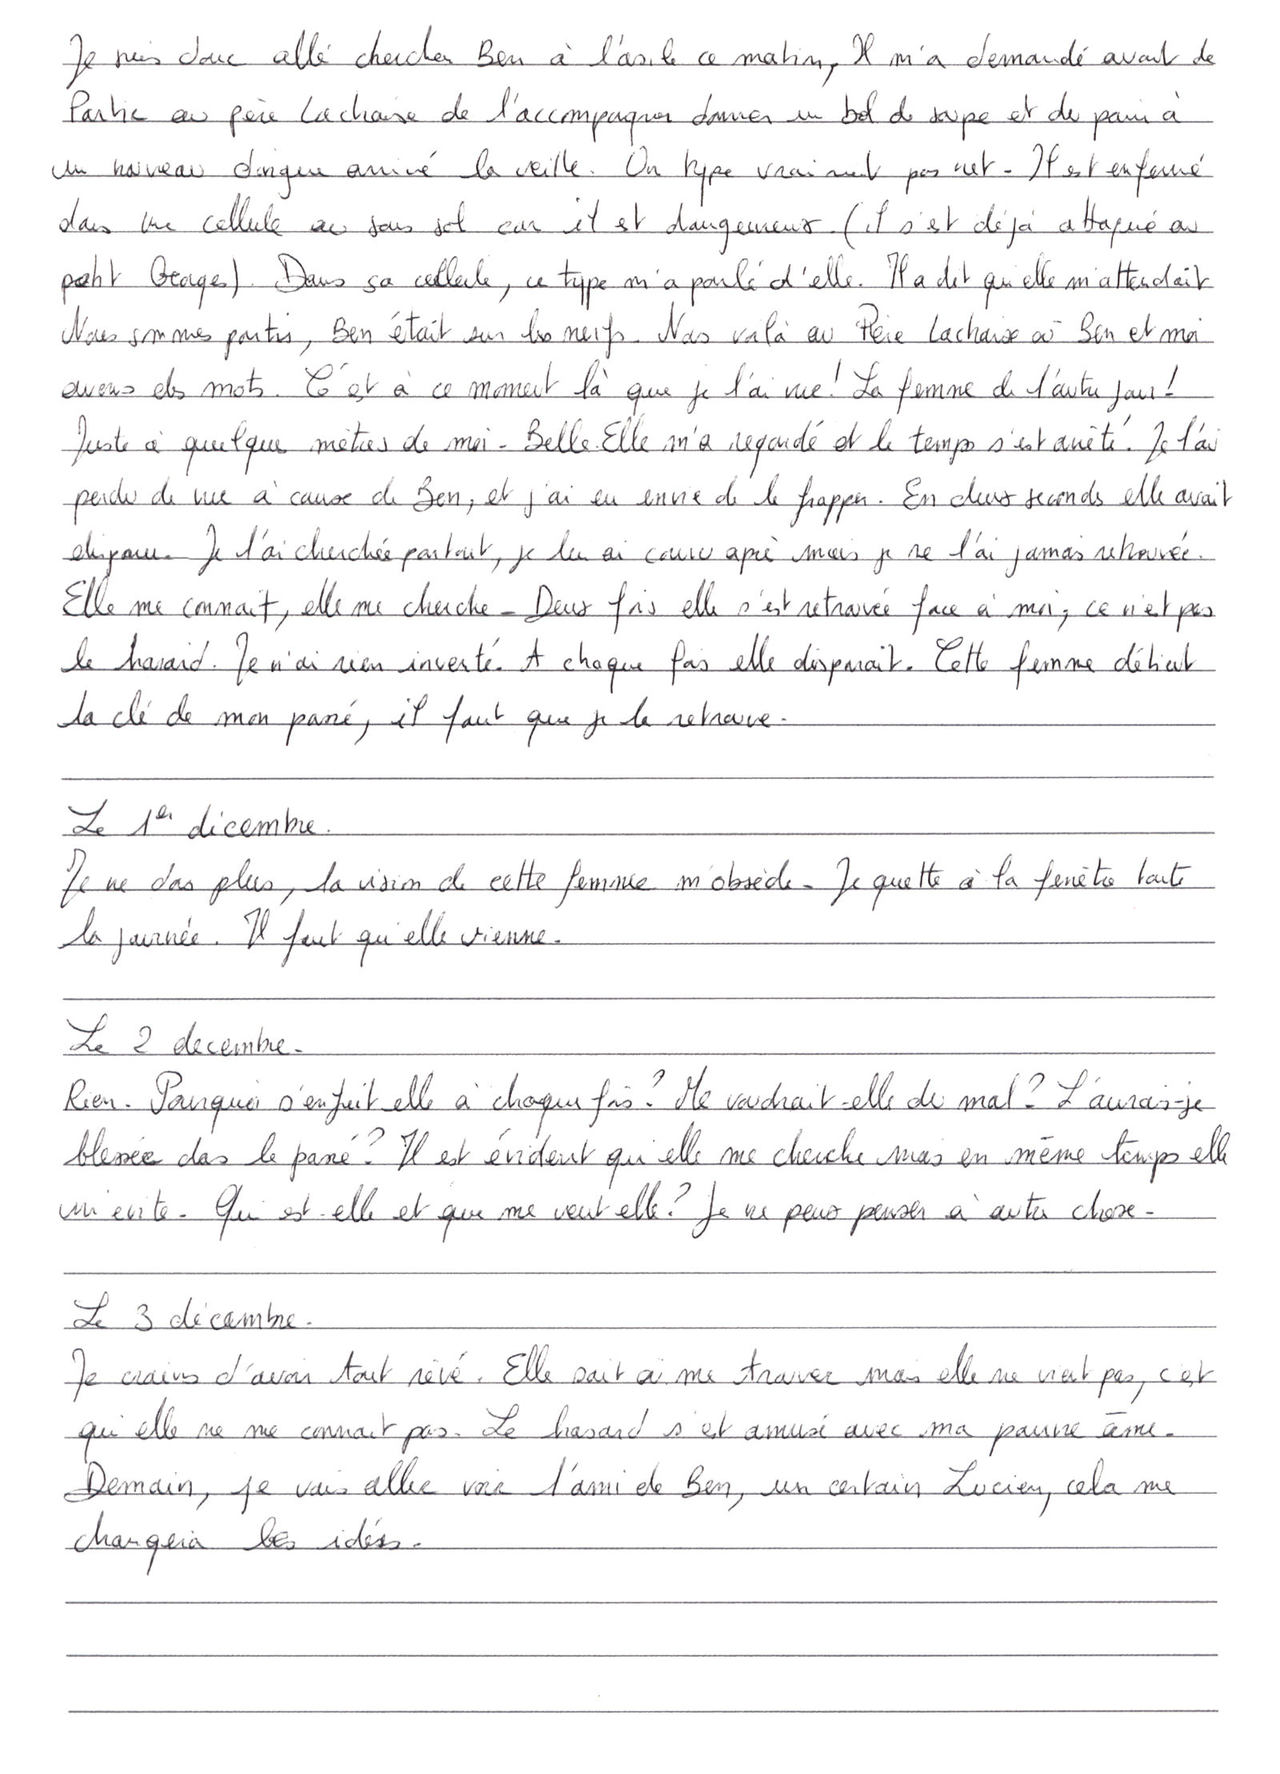 Je suis donc allé chercher Ben à l'asile ce matin, Il m'a demandé avant de
Partir au père Lachaise de l'accompagner donner un bol de soupe et du pain à
un nouveau dingue arrivé la veille. Un type vraiment pas net. Il est enfermé
dans une cellule au sous sol car il est dangeureux (il s'est déjà attaqué au
petit Georges). Dans sa cellule, ce type m'a parlé d'elle. Il a dit qu'elle m'attendait
Nous sommes partis, Ben était sur les nerfs. Nous voilà au Père Lachaise où Ben et moi
avons des mots. C'est à ce moment là que je l'ai vue! La femme de l'autre jour!
Juste à quelque mètres de moi. Belle. Elle m'a regardé et le temps s'est arrêté. Je l'ai
perdu de vue à cause de Ben, et j'ai eu envie de le frapper. En deux seconds elle avait
disparu. Je l'ai cherchée partout, je lui ai couru après mais je ne l'ai jamais retrouvée.
Elle me connait, elle me cherche. Deux fois elle s'est retrouvée face à moi, ce n'est pas
le hasard. Je n'ai rien inventé. A chaque fois elle disparait. Cette femme détient
la clé de mon passé, il faut que je la retrouve.
Le 1er décembre.
Je ne dors plus, la vision de cette femme m'obsède. Je guette à la fenêtre toute
la journée. Il faut qu'elle vienne.
Le 2 decembre.
Rien. Pourquoi s'enfuit elle à chaque fois? Me voudrait-elle du mal? L'aurais-je
blessée dans le passé? Il est évident qu'elle me cherche mais en même temps elle
m'evite. Qui est-elle et que me veut elle? Je ne peux penser à autre chose.
Le 3 décembre.
Je crains d'avoir tout rêvé. Elle sait où me trouver mais elle ne vient pas, c'est
qu'elle ne me connait pas. Le hasard s'est amusé avec ma pauvre âme.
Demain, je vais aller voir l'ami de Ben, un certain Lucien, cela me
changera les idées.